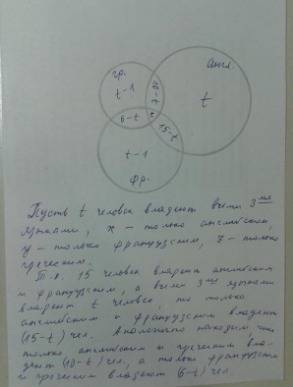 гр.
англ.
t-1
10-t
t
t
6-t
15-t
t-1
фр.
Пусть t человек владеют всеми 3мя
языками, x - только английским,
y - только французским, z - только
греческим.
Т.к. 15 человек владеют английским
и французским, а всеми 3мя языками
владеют t человек, то только
английским и французским владеют
(15-t) чел. Аналогично находим, что
только английским и греческим вла-
деют (10-t) чел, а только французским
и греческим владеют (6-t) чел.